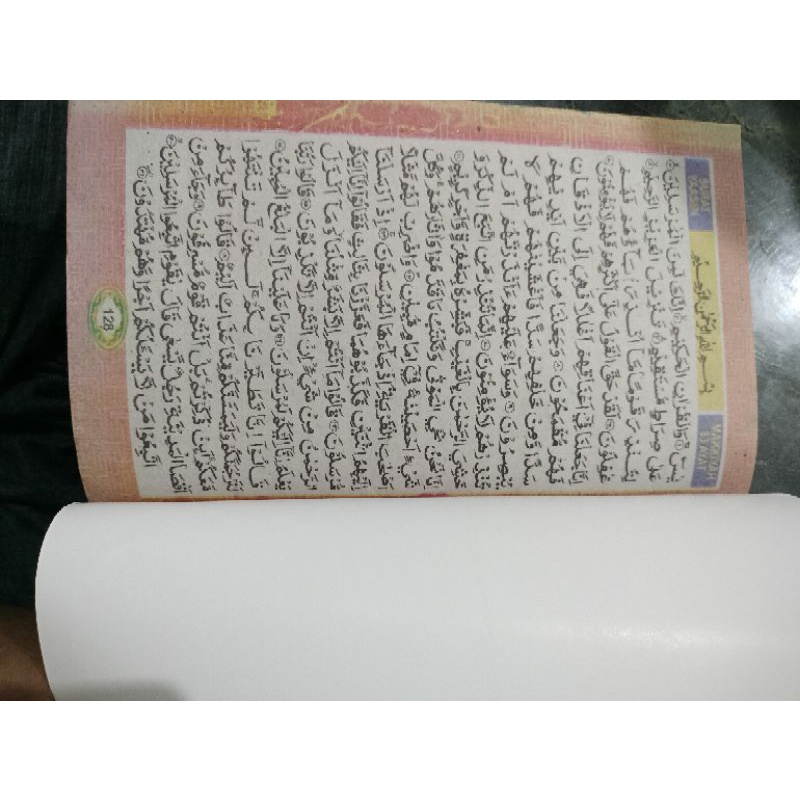 SURAH YASEEN
بِسْمِ اللّٰهِ الرَّحْمٰنِ الرَّحِيْمِ
MAKKIYAH 83 AYAT
يٰسٓ ۝ وَالْقُرْاٰنِ الْحَكِيْمِ ۝ اِنَّكَ لَمِنَ الْمُرْسَلِيْنَ ۝
عَلٰى صِرَاطٍ مُّسْتَقِيْمٍ ۝ تَنْزِيْلَ الْعَزِيْزِ الرَّحِيْمِ ۝
لِتُنْذِرَ قَوْمًا مَّآ اُنْذِرَ اٰبَآؤُهُمْ فَهُمْ
غٰفِلُوْنَ ۝ لَقَدْ حَقَّ الْقَوْلُ عَلٰٓى اَكْثَرِهِمْ فَهُمْ لَا يُؤْمِنُوْنَ ۝
اِنَّا جَعَلْنَا فِيْٓ اَعْنَاقِهِمْ اَغْلٰلًا فَهِيَ اِلَى الْاَذْقَانِ
فَهُمْ مُّقْمَحُوْنَ ۝ وَجَعَلْنَا مِنْۢ بَيْنِ اَيْدِيْهِمْ
سَدًّا وَّمِنْ خَلْفِهِمْ سَدًّا فَاَغْشَيْنٰهُمْ فَهُمْ لَا
يُبْصِرُوْنَ ۝ وَسَوَآءٌ عَلَيْهِمْ ءَاَنْذَرْتَهُمْ اَمْ لَمْ
تُنْذِرْهُمْ لَا يُؤْمِنُوْنَ ۝ اِنَّمَا تُنْذِرُ مَنِ اتَّبَعَ الذِّكْرَ وَ
خَشِيَ الرَّحْمٰنَ بِالْغَيْبِ فَبَشِّرْهُ بِمَغْفِرَةٍ وَّاَجْرٍ كَرِيْمٍ ۝
اِنَّا نَحْنُ نُحْيِ الْمَوْتٰى وَنَكْتُبُ مَا قَدَّمُوْا وَاٰثَارَهُمْ وَكُلَّ
شَيْءٍ اَحْصَيْنٰهُ فِيْٓ اِمَامٍ مُّبِيْنٍ ۝ وَاضْرِبْ لَهُمْ مَّثَلًا
اَصْحٰبَ الْقَرْيَةِ اِذْ جَآءَهَا الْمُرْسَلُوْنَ ۝ اِذْ اَرْسَلْنَآ
اِلَيْهِمُ اثْنَيْنِ فَكَذَّبُوْهُمَا فَعَزَّزْنَا بِثَالِثٍ فَقَالُوْٓا اِنَّآ اِلَيْكُمْ
مُّرْسَلُوْنَ ۝ قَالُوْا مَآ اَنْتُمْ اِلَّا بَشَرٌ مِّثْلُنَا وَمَآ اَنْزَلَ
الرَّحْمٰنُ مِنْ شَيْءٍ اِنْ اَنْتُمْ اِلَّا تَكْذِبُوْنَ ۝ قَالُوْا رَبُّنَا
يَعْلَمُ اِنَّآ اِلَيْكُمْ لَمُرْسَلُوْنَ ۝ وَمَا عَلَيْنَآ اِلَّا الْبَلٰغُ الْمُبِيْنُ ۝
قَالُوْٓا اِنَّا تَطَيَّرْنَا بِكُمْ لَئِنْ لَّمْ تَنْتَهُوْا
لَنَرْجُمَنَّكُمْ وَلَيَمَسَّنَّكُمْ مِّنَّا عَذَابٌ اَلِيْمٌ ۝ قَالُوْا طَآئِرُكُمْ
مَّعَكُمْ اَئِنْ ذُكِّرْتُمْ بَلْ اَنْتُمْ قَوْمٌ مُّسْرِفُوْنَ ۝ وَجَآءَ مِنْ
اَقْصَا الْمَدِيْنَةِ رَجُلٌ يَّسْعٰى قَالَ يٰقَوْمِ اتَّبِعُوا الْمُرْسَلِيْنَ ۝
اتَّبِعُوْا مَنْ لَّا يَسْئَلُكُمْ اَجْرًا وَّهُمْ مُّهْتَدُوْنَ ۝
128